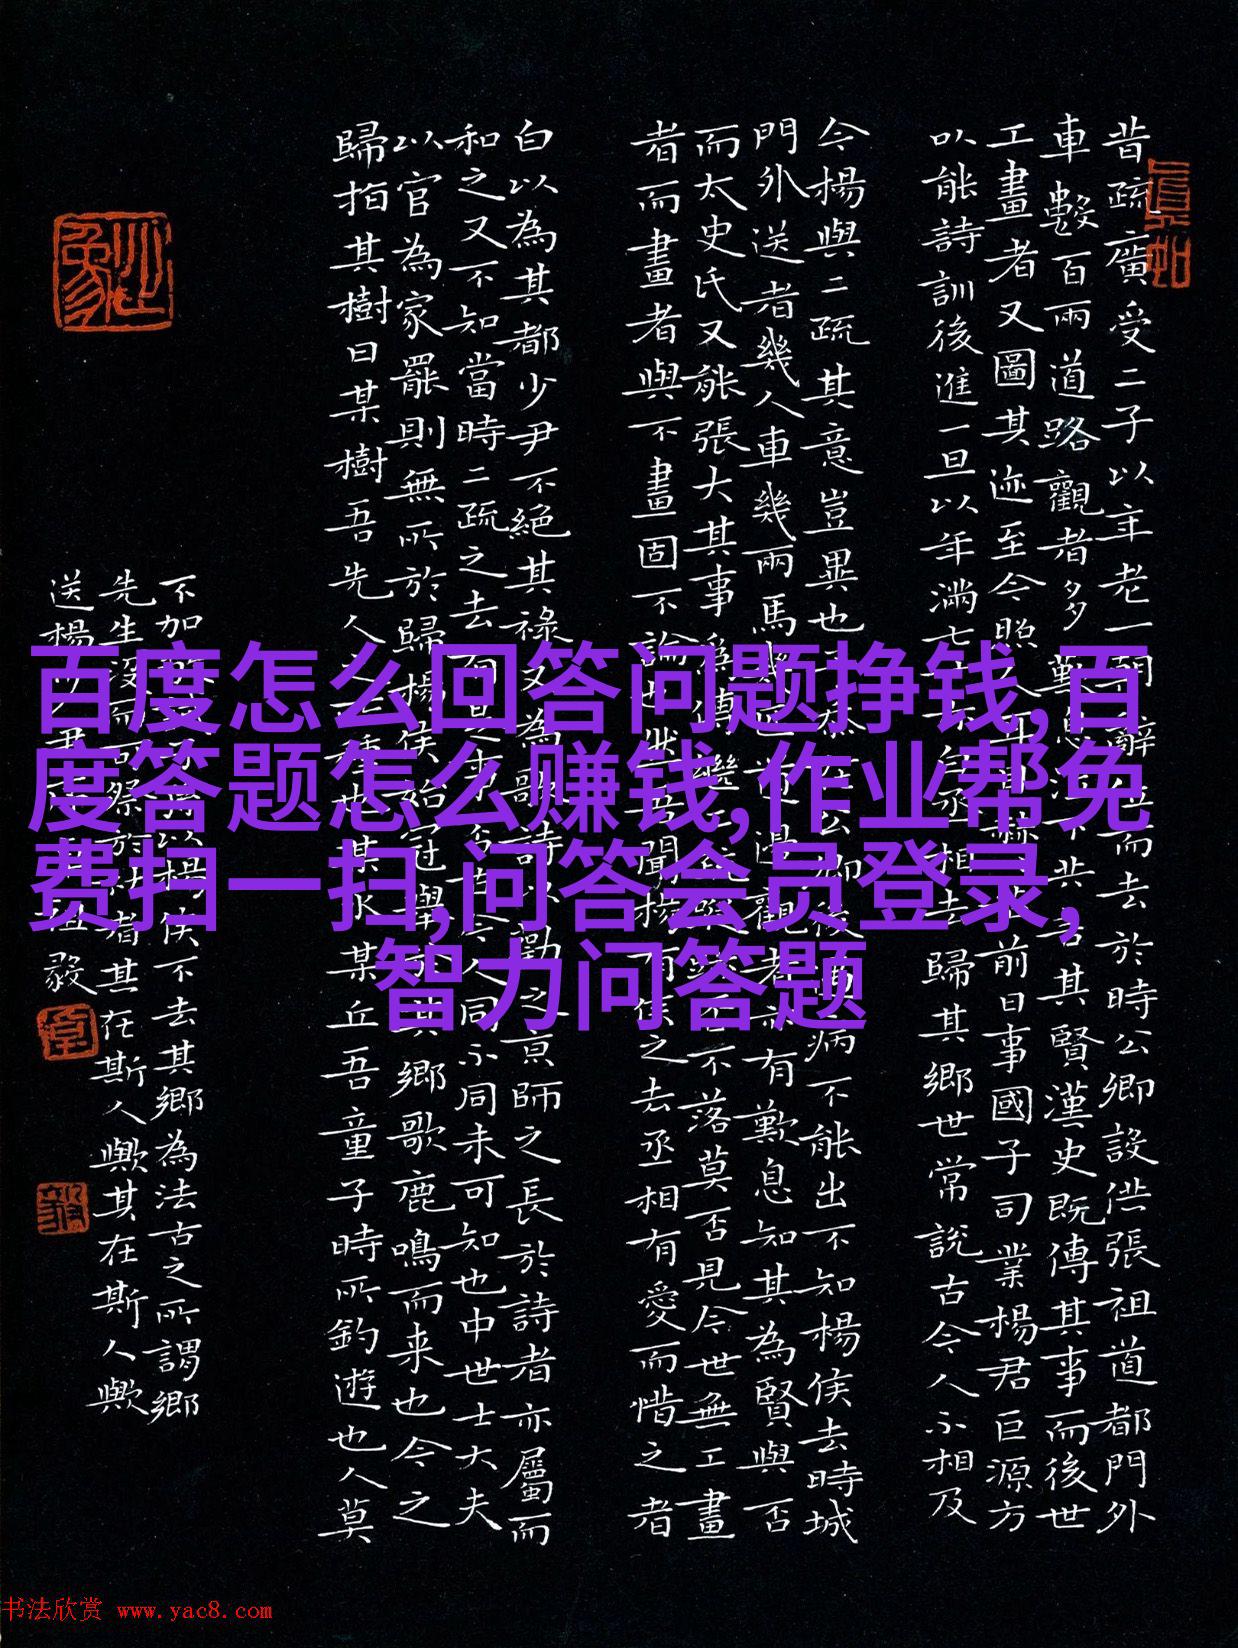 昔疏廣受二子以年老一朝辭位而去於時公卿設供張祖道都門外
車數百兩道路觀者多歎息泣下共言其賢漢史既傳其事而後世
工畫者又圖其迹至今照人前日事國子司業楊君巨源方
以能詩訓後進一旦以年滿七相去歸其鄉世常說古今人不相及
今楊與二疏其意豈異也公卿後遇病不能出不知楊侯去時城
門外送者幾人車幾兩馬道邊觀者亦有歎息知其為賢與否
而太史氏又能張大其事為傳繼不落莫否見今世無工畫
者而畫者與不畫固不論也然吾聞楊侯之去丞相有愛而惜之者
白以為其都少尹不絕其祿又為歌詩勸之京師之長於詩者亦屬而
和之又不知當時二疏之去今人同不同未可知也中世士大夫
以官為家罷則無所於歸楊侯始冠舉其鄉歌鹿鳴而来也今之
歸指其樹曰某樹吾先人之某水某丘吾童子時所釣遊也人莫
不加以楊侯不去其鄉為法古之所謂鄉
先生沒而可祭於社者其在斯人歟其在斯人歟
送楊少尹毅
百度怎么回答问题挣钱,百
度答题怎么赚钱,作业帮免
费扫一扫,问答会员登录,
智力问答题
书法欣赏 www.yac8.com